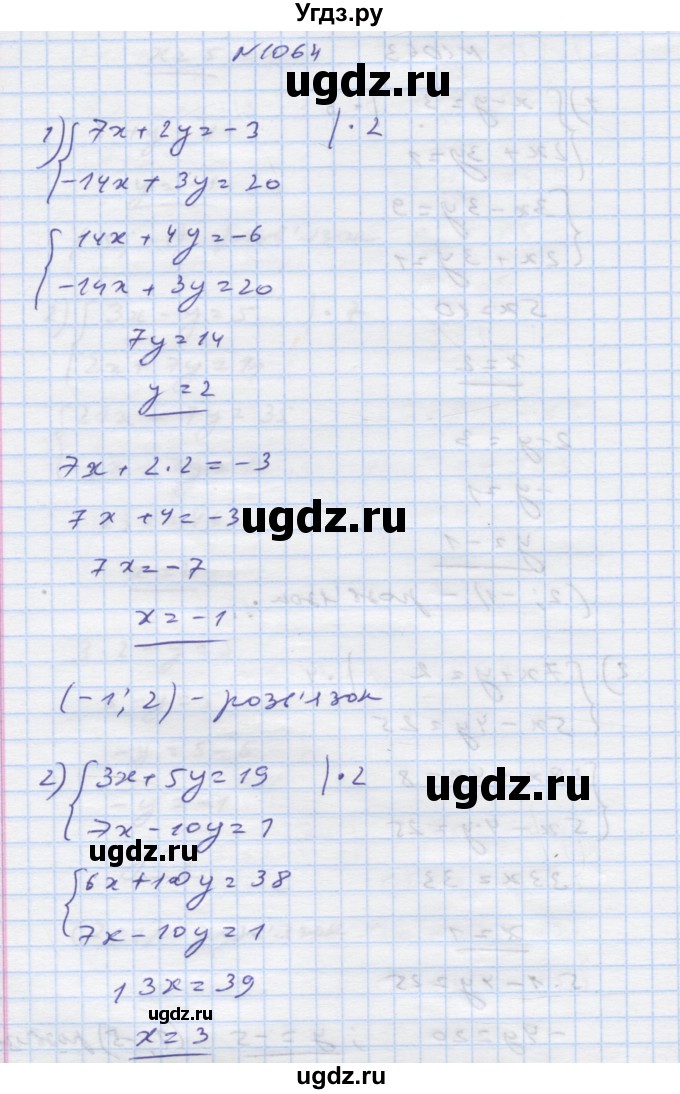 Угдз.ру
N1064
ugdz.ru
1) { 7x + 2y = -3 | · 2
-14x + 3y = 20
{ 14x + 4y = -6
-14x + 3y = 20
7y = 14
y = 2
7x + 2·2 = -3
7x + 4 = -3
ugdz.ru
7x = -7
x = -1
(-1; 2) - розв'язок
2) { 3x + 5y = 19 | · 2
ugdz.ru
7x - 10y = 1
ugdz.ru
{ 6x + 10y = 38
7x - 10y = 1
13x = 39
ugdz.ru
x = 3
ugdz.ru